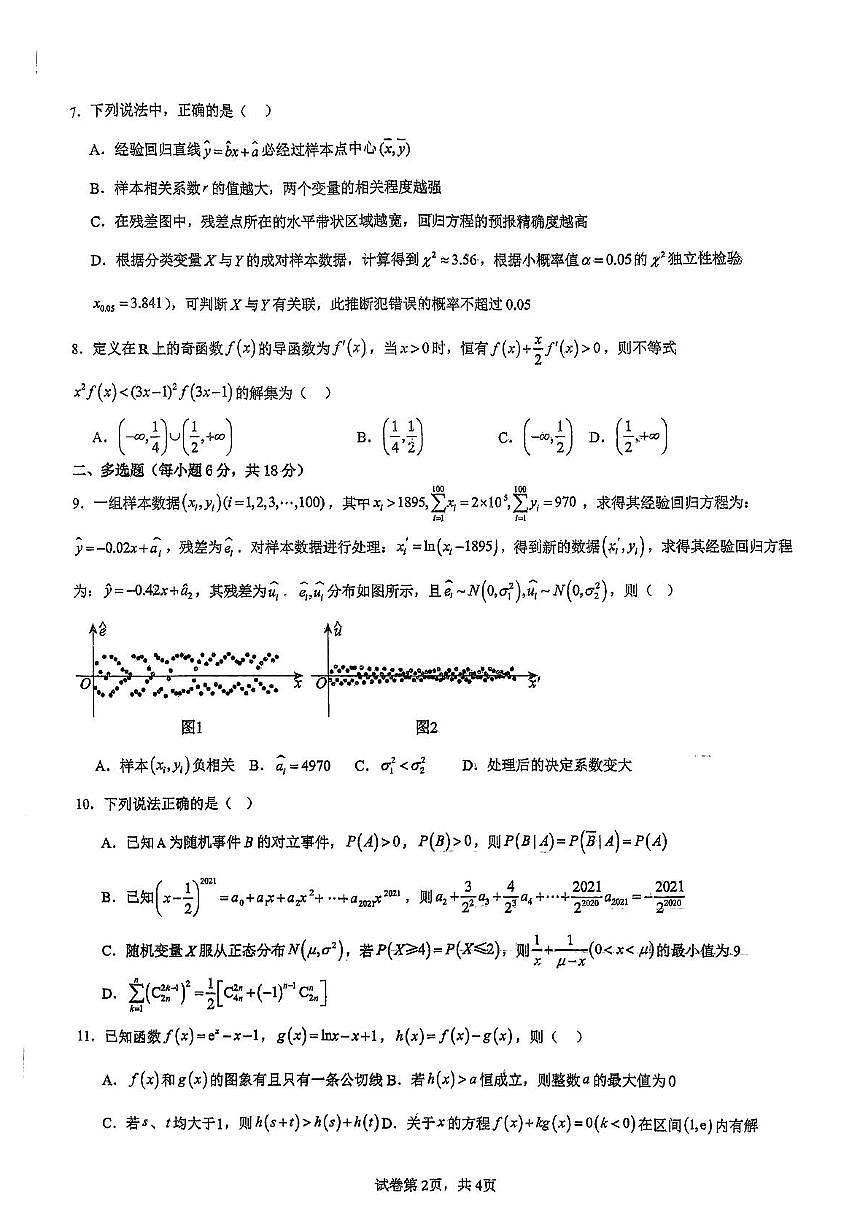 7. 下列说法中，正确的是（ ）
A. 经验回归直线ŷ=b̂x+â必经过样本点中心(x̄,ȳ)
B. 样本相关系数r的值越大，两个变量的相关程度越强
C. 在残差图中，残差点所在的水平带状区域越宽，回归方程的预报精确度越高
D. 根据分类变量X与Y的成对样本数据，计算得到χ²≈3.56，根据小概率值α=0.05的χ²独立性检验
x₀.₀₅=3.841），可判断X与Y有关联，此推断犯错误的概率不超过0.05
8. 定义在R上的奇函数f(x)的导函数为f′(x)，当x>0时，恒有f(x)+x/2 f′(x)>0，则不等式
x²f(x)<(3x−1)²f(3x−1)的解集为（ ）
A. (−∞,1/4)∪(1/2,+∞) B. (1/4,1/2) C. (−∞,1/2) D. (1/2,+∞)
二、多选题（每小题6分，共18分）
9. 一组样本数据(xᵢ,yᵢ)(i=1,2,3,⋯,100)，其中xᵢ>1895,∑_{i=1}^{100}xᵢ=2×10⁵,∑_{i=1}^{100}yᵢ=970，求得其经验回归方程为：
ŷ=−0.02x+â₁，残差为êᵢ. 对样本数据进行处理：xᵢ′=ln(xᵢ−1895)，得到新的数据(xᵢ′,yᵢ)，求得其经验回归方程
为：ŷ=−0.42x+â₂，其残差为ûᵢ. êᵢ,ûᵢ分布如图所示，且êᵢ~N(0,σ₁²),ûᵢ~N(0,σ₂²)，则（ ）
ê
O
x
图1
û
O
x′
图2
A. 样本(xᵢ,yᵢ)负相关 B. âᵢ=4970 C. σ₁²<σ₂² D. 处理后的决定系数变大
10. 下列说法正确的是（ ）
A. 已知A为随机事件B的对立事件，P(A)>0，P(B)>0，则P(B|A)=P(B̄|A)=P(A)
B. 已知(x−1/2)²⁰²¹=a₀+a₁x+a₂x²+⋯+a₂₀₂₁x²⁰²¹，则a₂+3/2² a₃+4/2³ a₄+⋯+2021/2²⁰²⁰ a₂₀₂₁=−2021/2²⁰²⁰
C. 随机变量X服从正态分布N(μ,σ²)，若P(X≥4)=P(X≤2)，则1/x+1/(μ−x)(0<x<μ)的最小值为9
D. ∑_{k=1}^{n}(C_{2n}^{2k−1})²=1/2[C_{4n}^{2n}+(−1)ⁿ⁻¹C_{2n}^{n}]
11. 已知函数f(x)=eˣ−x−1，g(x)=lnx−x+1，h(x)=f(x)−g(x)，则（ ）
A. f(x)和g(x)的图象有且只有一条公切线 B. 若h(x)>a恒成立，则整数a的最大值为0
C. 若s、t均大于1，则h(s+t)>h(s)+h(t) D. 关于x的方程f(x)+kg(x)=0(k<0)在区间(1,e)内有解
试卷第2页，共4页